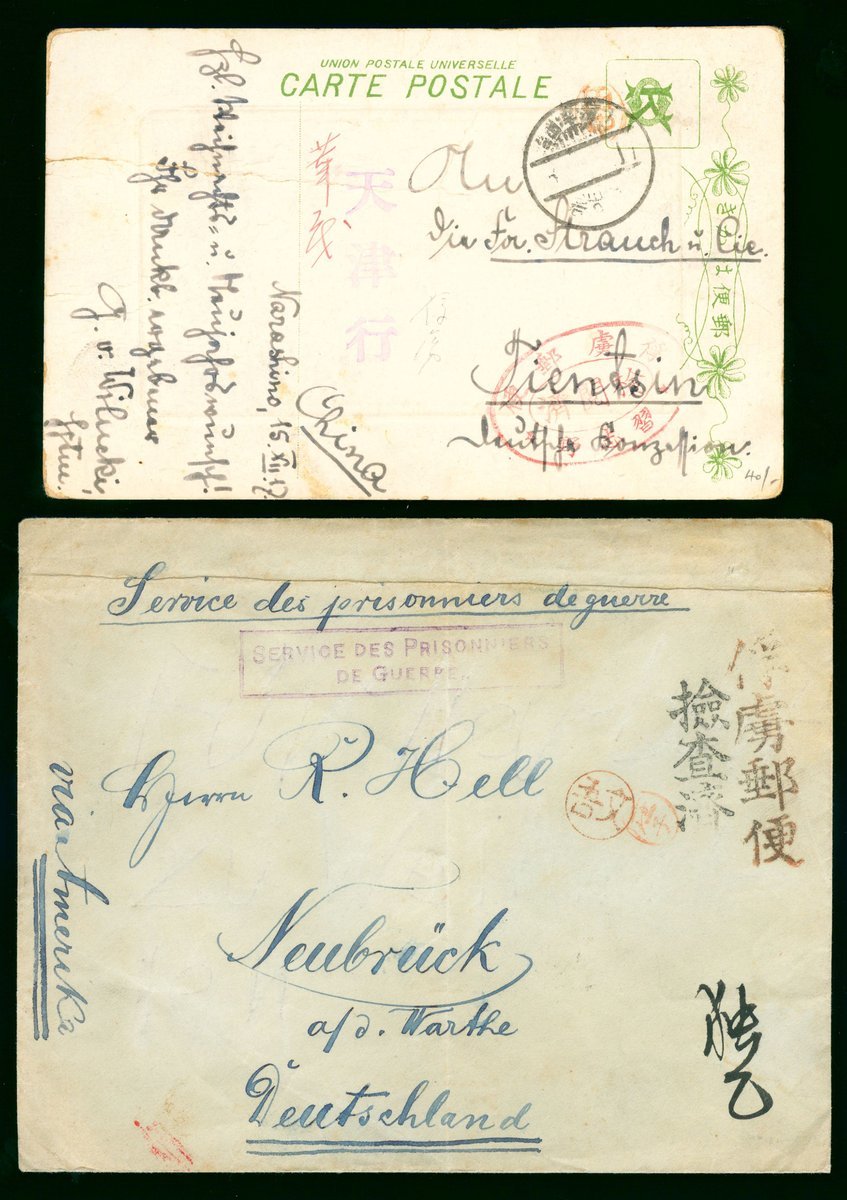 UNION POSTALE UNIVERSELLE
CARTE POSTALE
きかは便郵
An
die For. Strauch u. Cie.
Tientsin
Deutsche Konzession.
China
天津行
Narashino, 15. XII. 17.
Hzl. Weihnachts- u. Neujahrswunsch!
Ihr dankb. ergebener
G. v. Wilucki,
40/-
Service des prisonniers de guerre
SERVICE DES PRISONNIERS
DE GUERRE.
俘虜郵便
檢査濟
Herrn R. Hell
Neubrück
a/d. Warthe
Deutschland
via Amerika
独乙